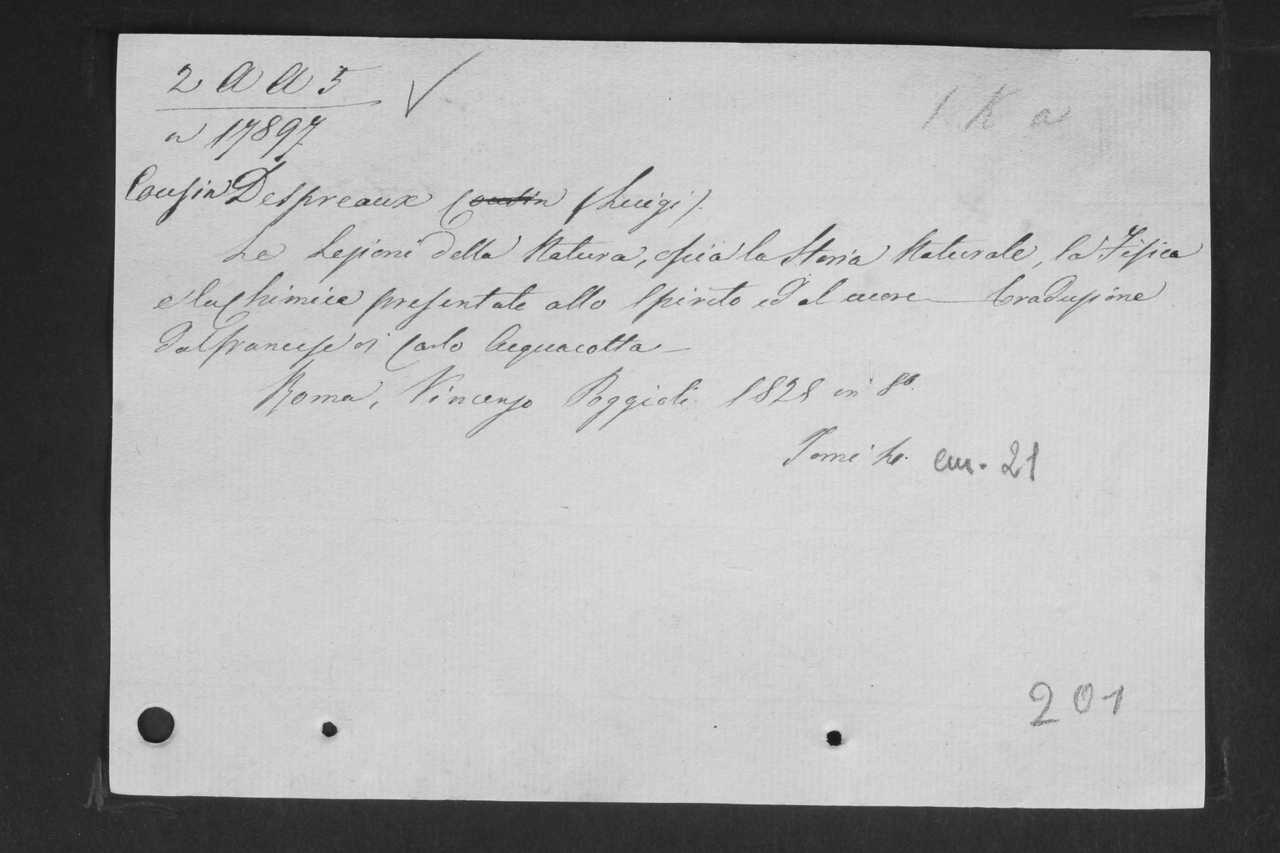 2 A A 5 ✓
1 K a
n 17897
Cousin Despreaux (Luigi).
Le Lezioni della Natura, ossia la Storia Naturale, la Fisica
e la Chimica presentate allo Spirito ed al cuore — traduzione
dal francese di Carlo Acquacotta —
Roma, Vincenzo Poggioli 1828 in 8º.
Tomi 4. cm. 21
201